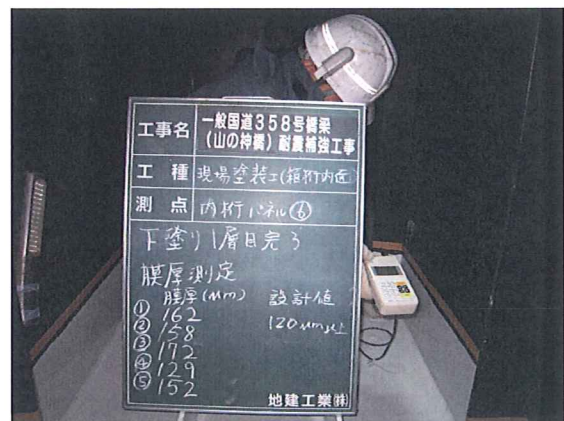 工事名 一般国道358号橋梁
(山の神橋)耐震補強工事
工種 現場塗装工(箱桁内面)
測点 内桁パネル⑥
下塗り1層目完了
膜厚測定
膜厚(μm) 設計値
① 162 120μm以上
② 158
③ 172
④ 129
⑤ 152
地建工業㈱